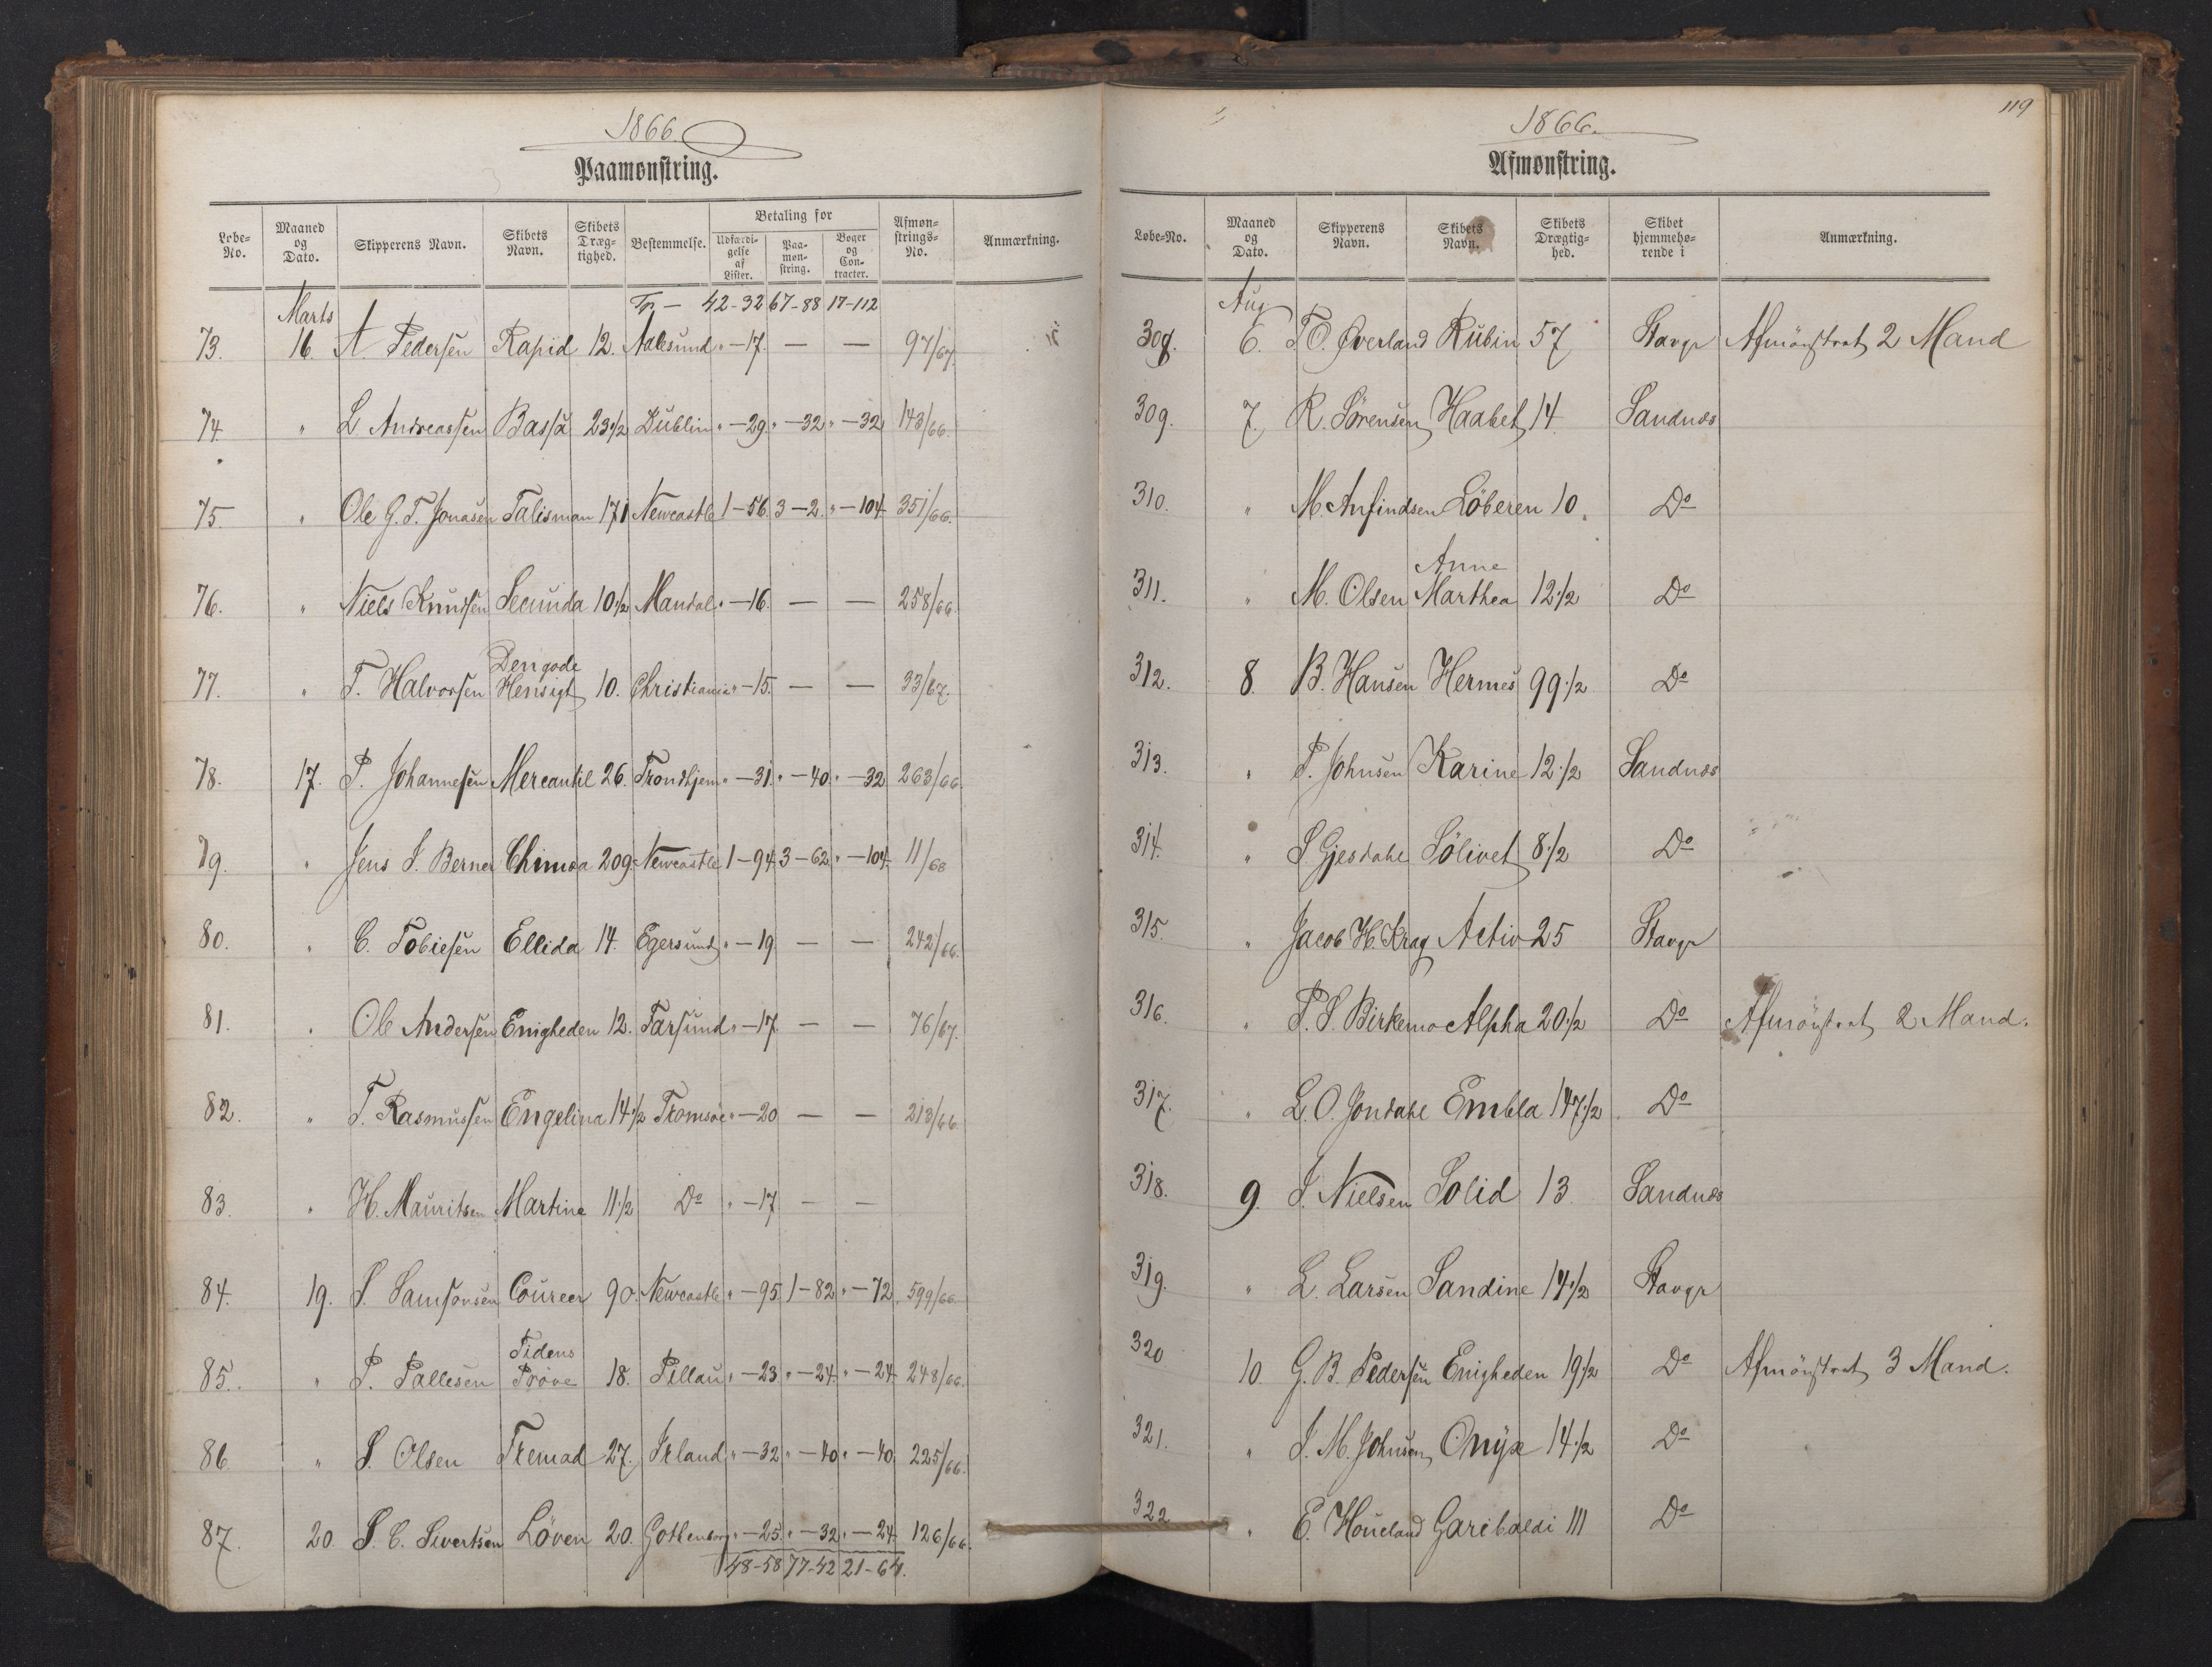 1866
Paamønstring.
Løbe-No. Maaned og Dato. Skipperens Navn. Skibets Navn. Skibets Drægtighed. Bestemmelse. Betaling for Udfærdigelse af Lister. Paamønstring. Bøger og Contracter. Afmønstrings-No. Anmærkning.
Tr. — 42-32 67-88 17-112
Marts
73. 16. A. Pedersen Rapid 12. Aalesund " — 17. — — 97/67.
74. " L. Andreassen Bassa 23 1/2 Dublin " — 29. " — 32 " — 32 143/66.
75 " Ole G. T. Jonasen Talisman 171 Newcastle 1 — 56. 3 — 2. " — 104 351/66.
76. " Niels Knudsen Secunda 10 1/2 Mandal " — 16. — — 258/66.
Den gode
77. " T. Halvorsen Hensigt 10. Christiania " — 15. — — 33/67.
78. 17. P. Johannesen Mercantil 26. Trondhjem " — 31. " — 40. " — 32 263/66
79. " Jens J. Berner Chimoa 209. Newcastle 1 — 94. 3 — 62 " — 104. 11/68
80. " C. Tobiesen Ellida 14. Egersund " — 19 — — 242/66.
81. " Ole Andersen Enigheden 12. Farsund " — 17 — — 76/67.
82. " T. Rasmussen Engelina 14 1/2 Tromsøe " — 20 — — 213/66
83. " H. Mauritsen Martine 11 1/2 Do " — 17 — —
84. 19. S. Samsonsen Coureer 90. Newcastle " — 95 1 — 82 " — 72. 599/66
Tidens
85. " P. Pallesen Prøve 18. Pillau " — 23 " — 24. " — 24 248/66.
86 " S. Olsen Tremad 27. Irland " — 32 " — 40 " — 40. 225/66.
87. 20. S. C. Sivertsen Løven 20. Gothenborg " — 25. " — 32 " — 24. 126/66.
48-58 77-42 21-64.
119
1866.
Afmønstring.
Løbe-No. Maaned og Dato. Skipperens Navn. Skibets Navn. Skibets Drægtighed. Skibet hjemmehørende i Anmærkning.
Aug
308. 6. T. O. Øverland Rubin 57 Stavgr Afmønstret 2 Mand
309. 7. R. Sørensen Haabet 14. Sandnæs
310. " M. Anfindsen Løberen 10. Do
Anne
311. " M. Olsen Marthea 12 1/2 Do
312. 8. B. Hansen Hermes 99 1/2 Do
313. " T. Johnsen Karine 12 1/2 Sandnæs
314. " S. Gjesdahl Sølivet 8 1/2 Do
315. " Jacob H. Krag Activ 25 Stavgr
316. " P. S. Birkemo Alpha 20 1/2 Do Afmønstret 2 Mand.
317. " L. O. Jondahl Embla 147 1/2 Do
318. 9. J. Nielsen Solid 13 Sandnæs
319. " L. Larsen Sandine 14 1/2 Stavgr
320 10. G. B. Pedersen Enigheden 19 1/2 Do Afmønstret 3 Mand.
321. " J. M. Johnsen Onyx 14 1/2 Do
322 " E. Houeland Garibaldi 111 Do